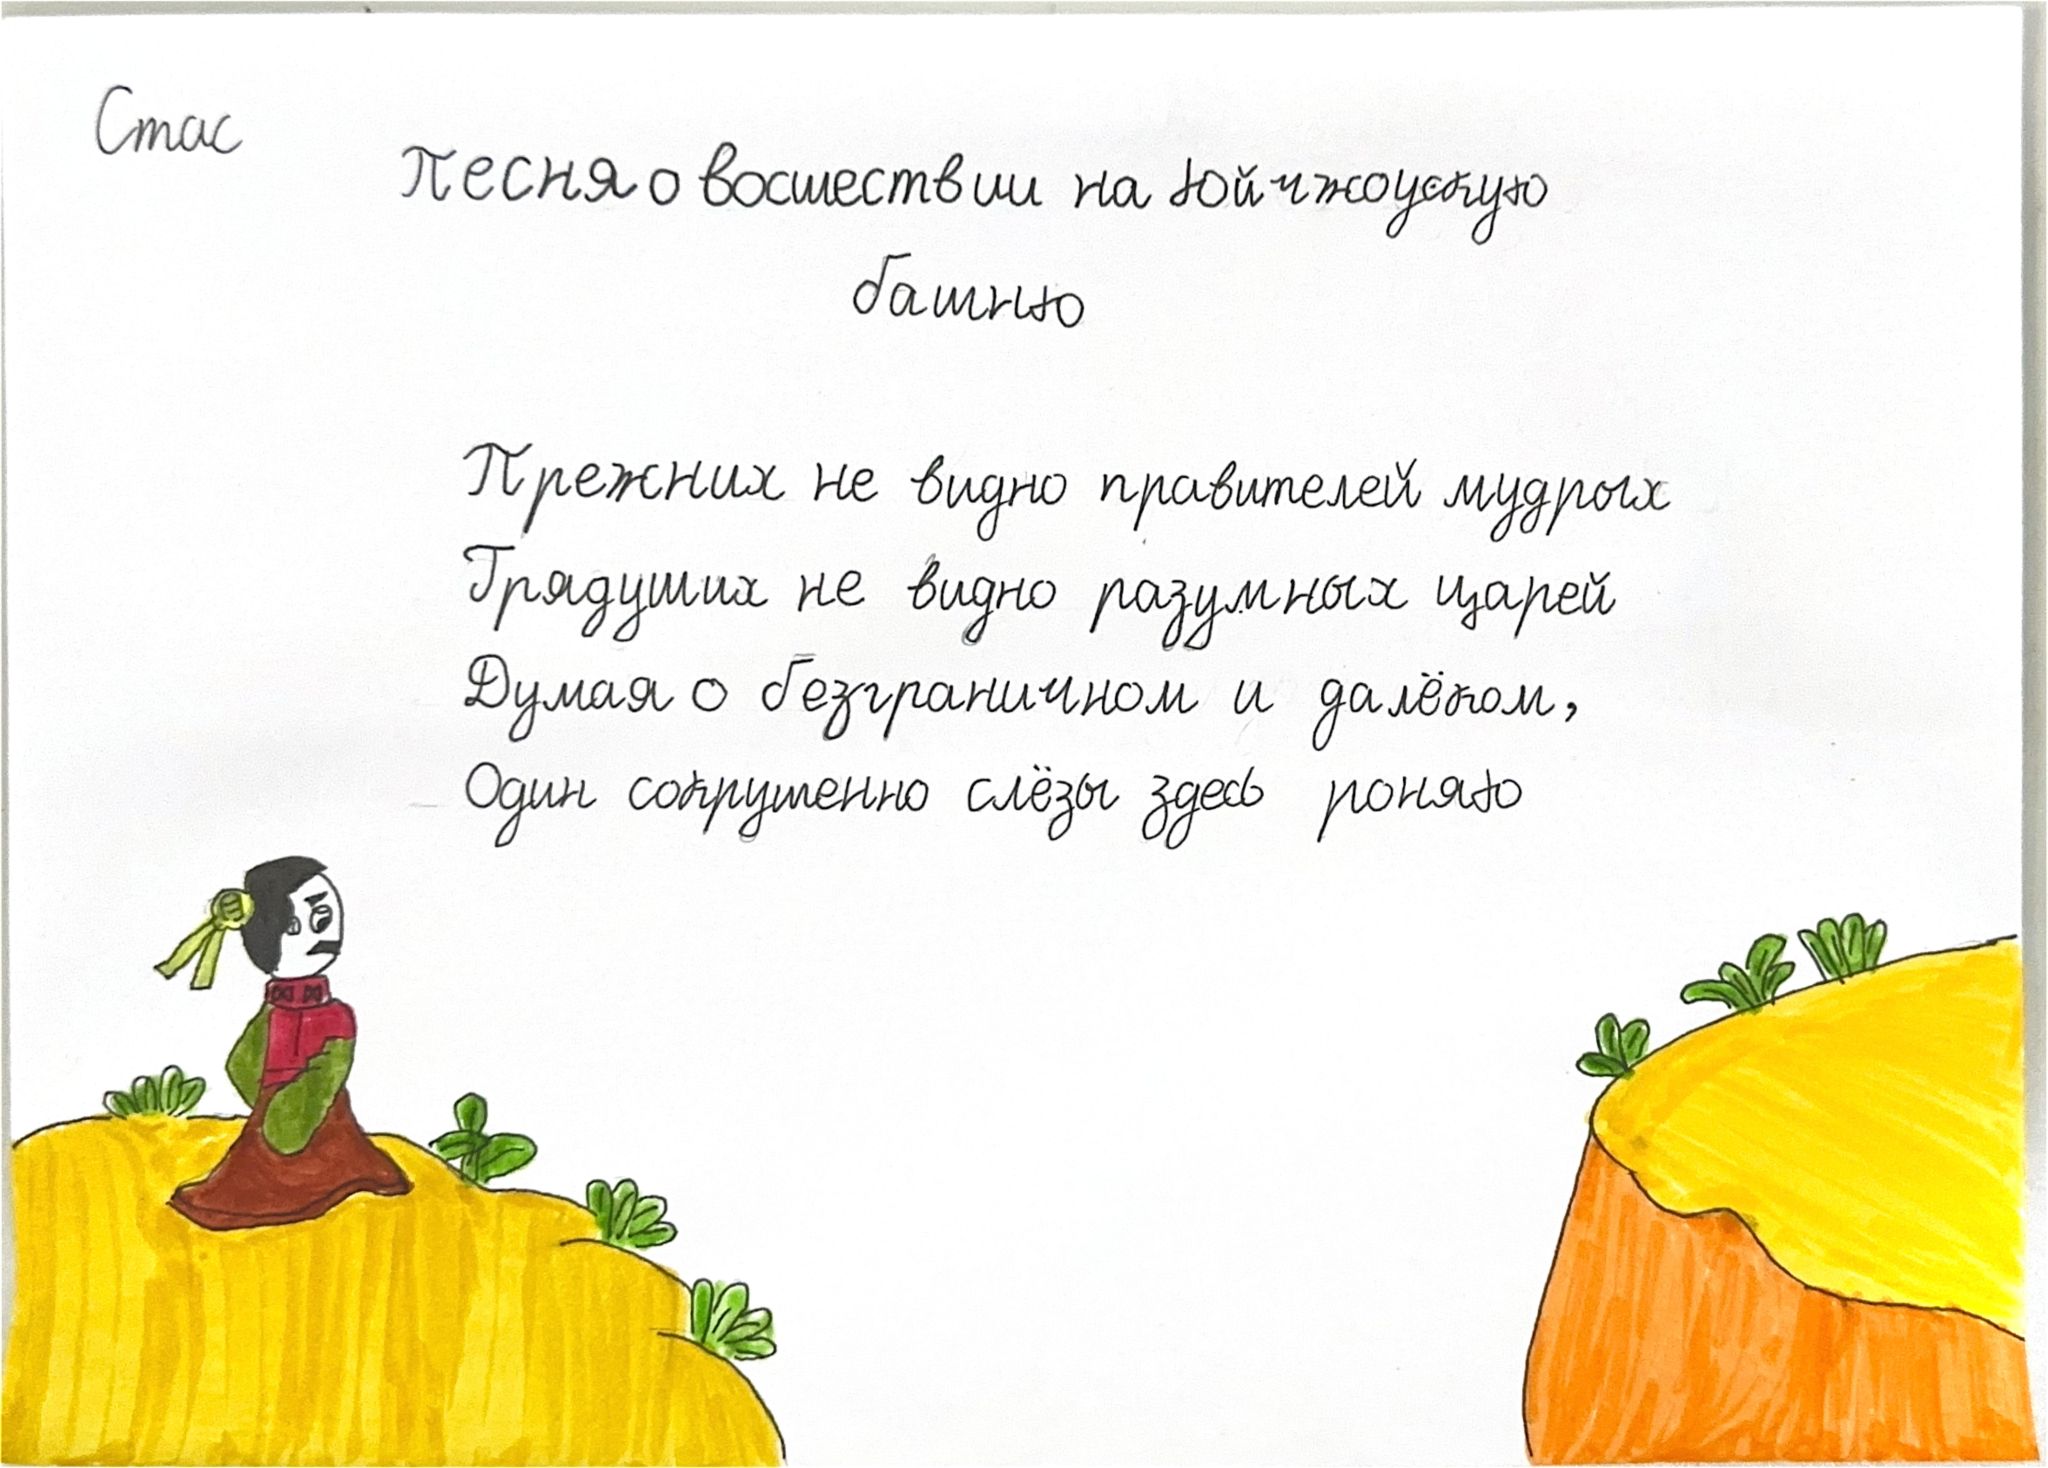 Стас
Песня о восшествии на Юйчжоускую
башню
Прежних не видно правителей мудрых
Грядуших не видно разумных царей
Думая о безграничном и далёком,
Один сокрушенно слёзы здесь роняю